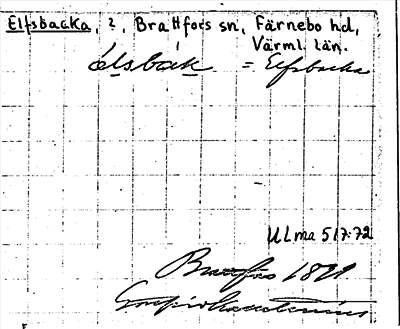 Elfsbacka, 2, Brattfors sn, Färnebo hd,
Värml. län.
élsbák = Elfsbacka
ULma 517:72
Brattfors 18